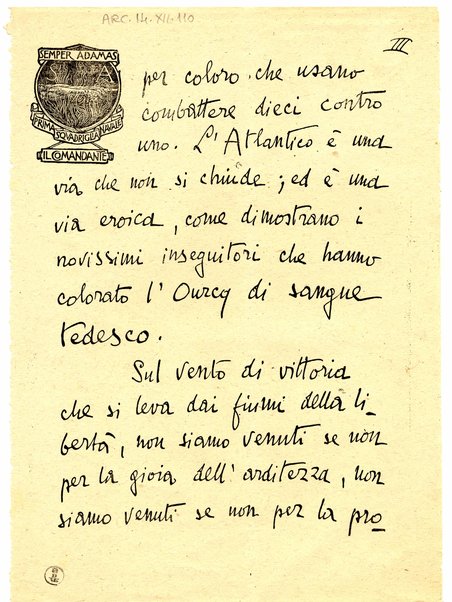 ARC. 14. XII. 110
III
SEMPER ADAMAS
S A
PRIMA SQUADRIGLIA NAVALE
IL COMANDANTE
per coloro che usano
combattere dieci contro
uno. L'Atlantico è una
via che non si chiude; ed è una
via eroica, come dimostrano i
novissimi inseguitori che hanno
colorato l'Ourcq di sangue
tedesco.
Sul vento di vittoria
che si leva dai fiumi della li-
bertà, non siamo venuti se non
per la gioia dell'arditezza, non
siamo venuti se non per la pro-